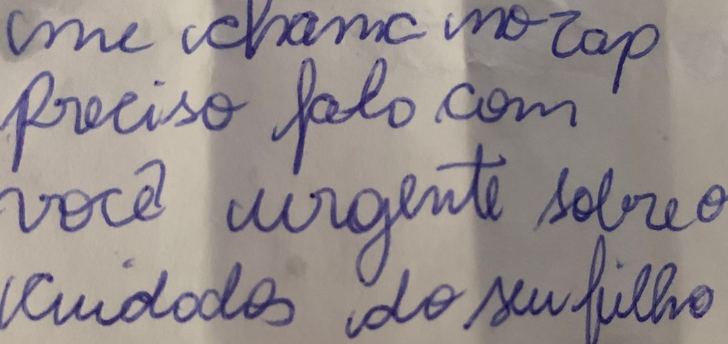 me chama no zap
preciso falo com
você urgente sobre o
cuidados do seu filho